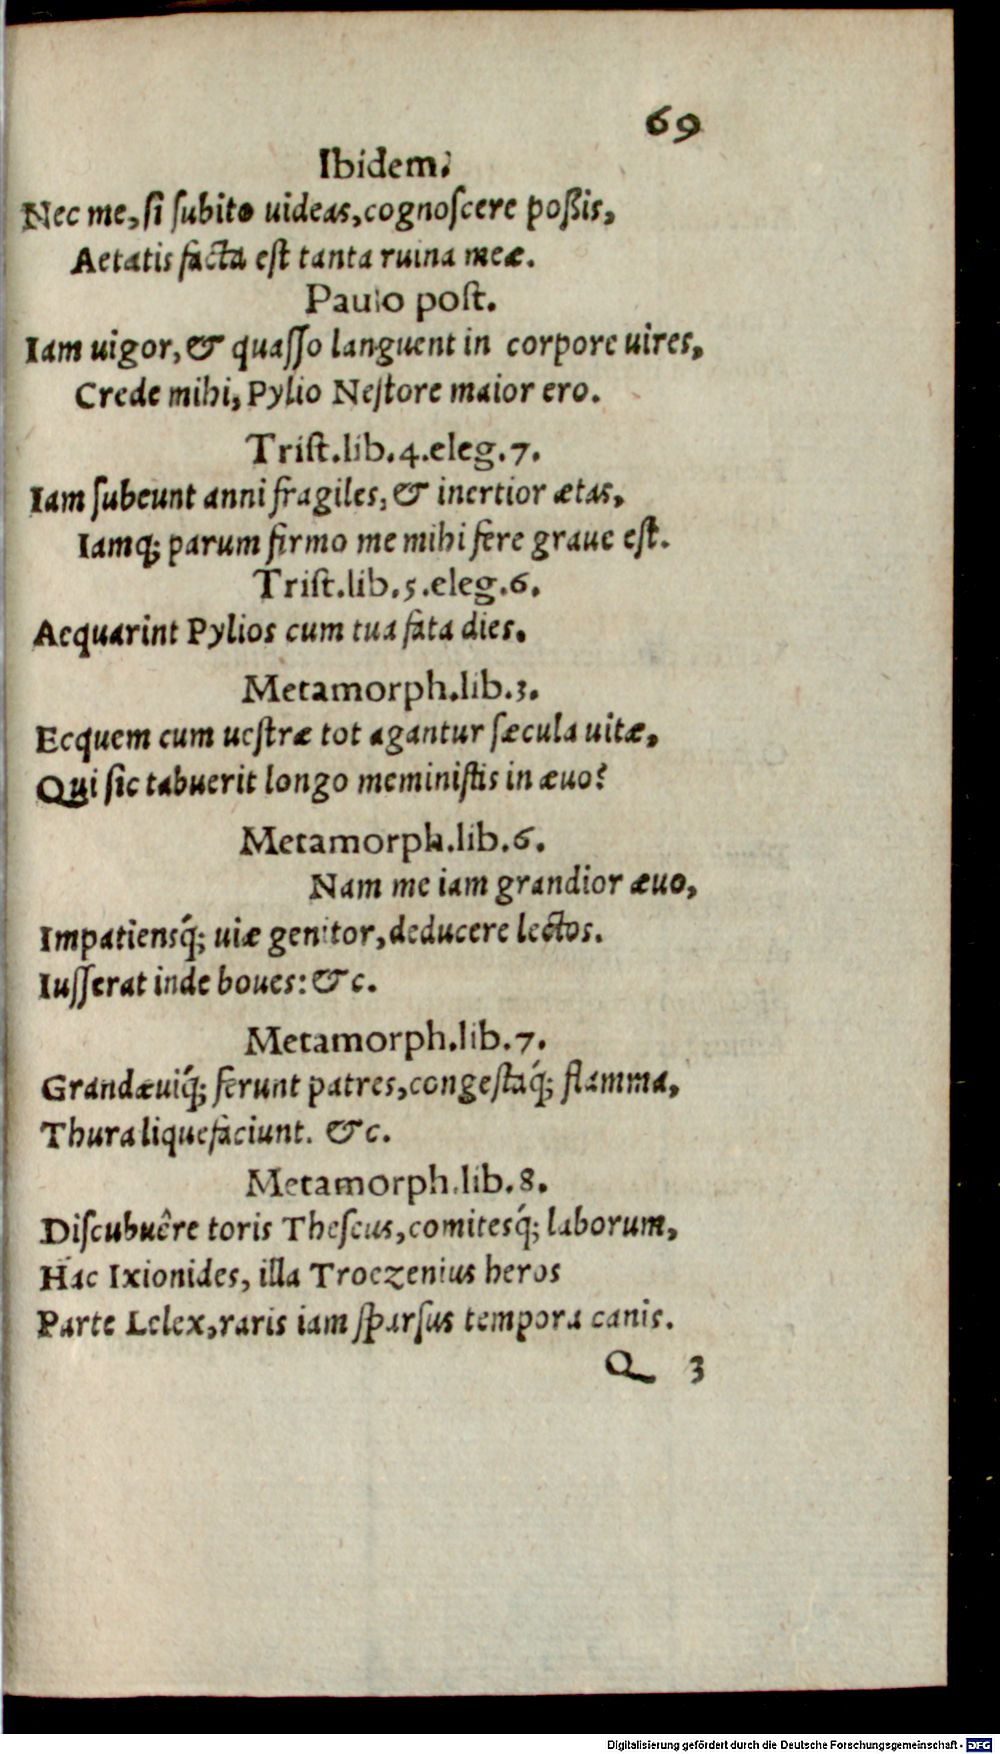 69
Ibidem.
Nec me, ſi ſubito uideas, cognoſcere poßis,
Aetatis facta est tanta ruina meæ.
Paulo poſt.
Iam uigor, & quaſſo languent in corpore uires,
Crede mihi, Pylio Neſtore maior ero.
Triſt.lib.4.eleg.7.
Iam ſubeunt anni fragiles, & inertior ætas,
Iamq; parum firmo me mihi fere graue eſt.
Triſt.lib.5.eleg.6.
Aequarint Pylios cum tua fata dies.
Metamorph.lib.3.
Ecquem cum ueſtræ tot agantur ſæcula uitæ,
Qui ſic tabuerit longo meminiſtis in æuo?
Metamorph.lib.6.
Nam me iam grandior æuo,
Impatiensq́; uiæ genitor, deducere lectos.
Iuſſerat inde boues: &c.
Metamorph.lib.7.
Grandæuiq́; ferunt patres, congeſtaq́; flamma,
Thura liquefaciunt. &c.
Metamorph.lib.8.
Diſcubuêre toris Theſeus, comitesq́; laborum,
Hac Ixionides, illa Troezenius heros
Parte Lelex, raris iam ſparſus tempora canis.
Q 3
Digitalisierung gefördert durch die Deutsche Forschungsgemeinschaft - DFG